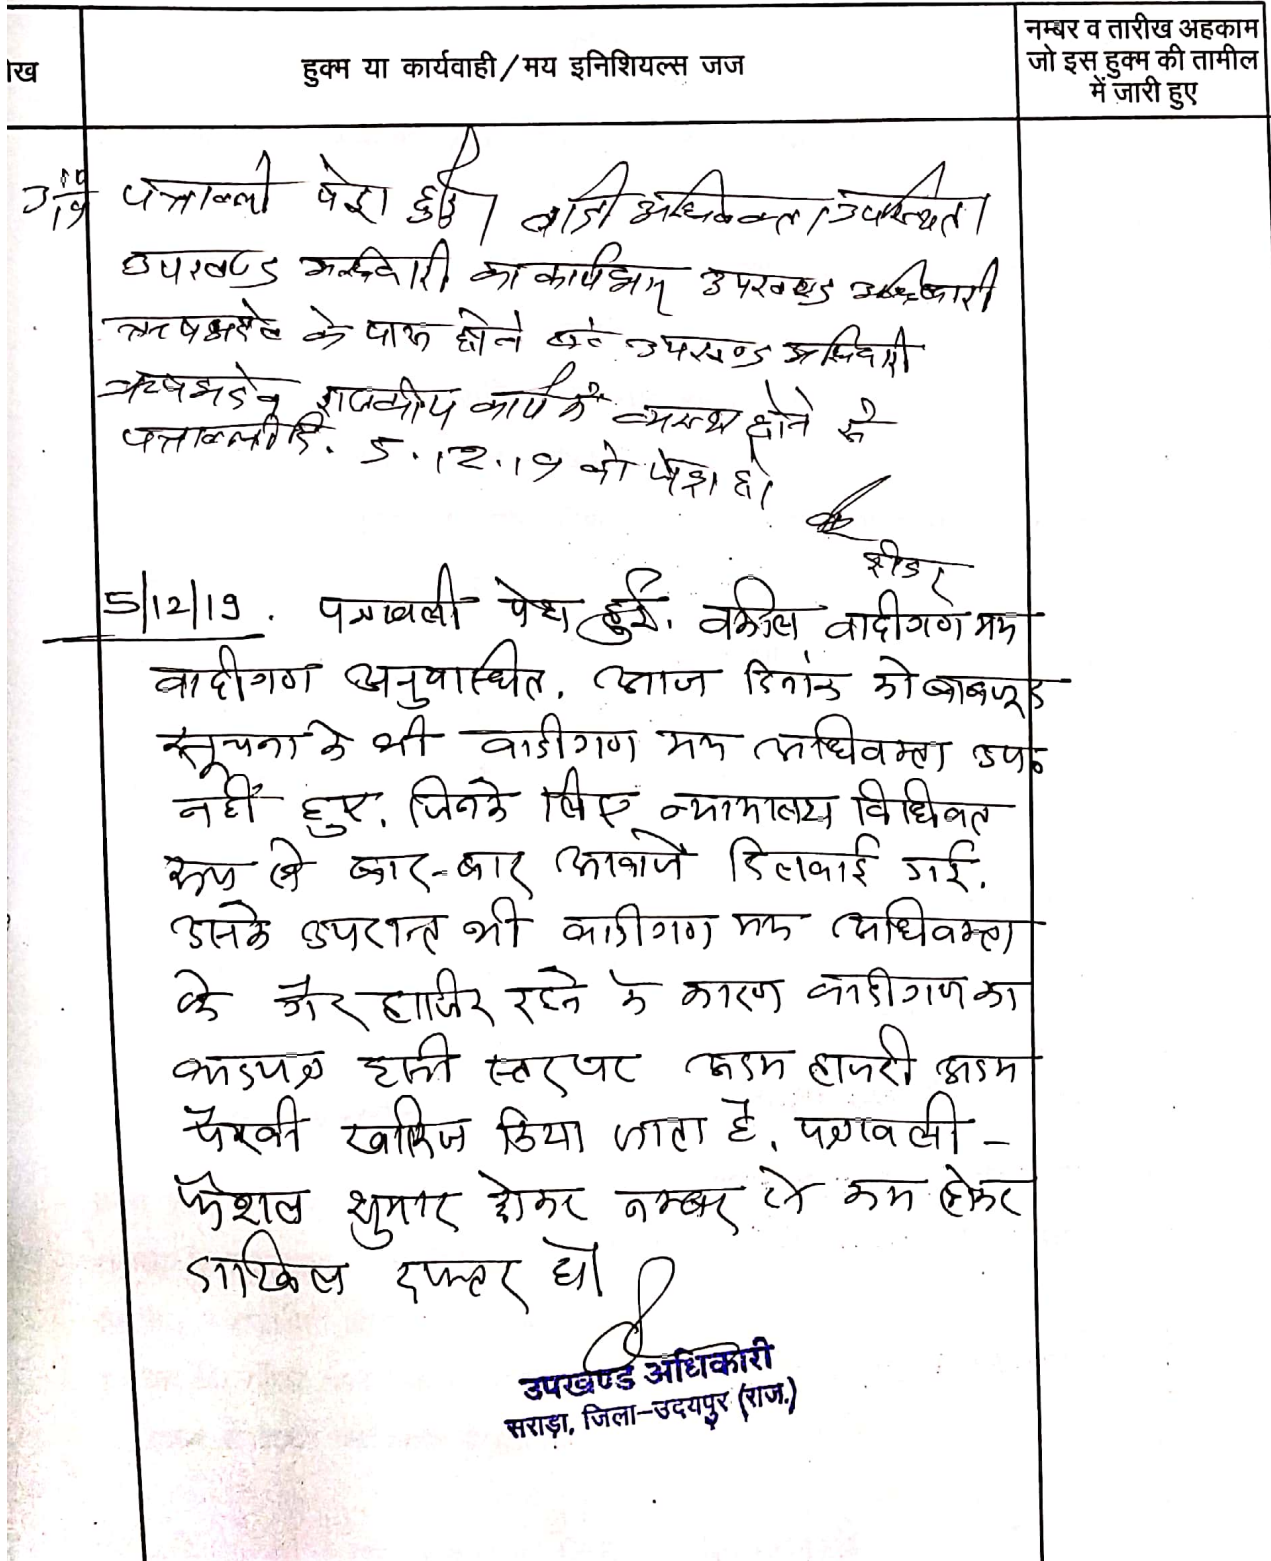 ीख
हुक्म या कार्यवाही/मय इनिशियल्स जज
नम्बर व तारीख अहकाम
जो इस हुक्म की तामील
में जारी हुए
पत्रावली पेश हुई। वादी अधिवक्ता उपस्थित।
उपखण्ड अधिकारी का कार्यभार उपखण्ड अधिकारी
ऋषभदेव के पास होने उपखण्ड अधिकारी
ऋषभदेव राजकीय कार्य में व्यस्थ होने से
पत्रावली दि. 5.12.19 को पेश हो
रीडर
5/12/19. पत्रावली पेश हुई. वकील वादीगण मय
वादीगण अनुपास्थित. आज दिनांक को बावजूद
सूचना के भी वादीगण मय अधिवक्ता उप०
नहीं हुए. जिनके लिए न्यायालय विधिवत
रूप से बार-बार आवाजे दिलवाई गई.
उसके उपरान्त भी वादीगण मय अधिवक्ता
के गैर हाजिर रहने के कारण वादीगण का
वादपत्र इसी स्तर पर अदम हाजरी अदम
पैरवी खारिज किया जाता है. पत्रावली -
फैशल शुमार होकर नम्बर से कम होकर
दाखिल दफ्तर हो
उपखण्ड अधिकारी
सराड़ा, जिला-उदयपुर (राज.)